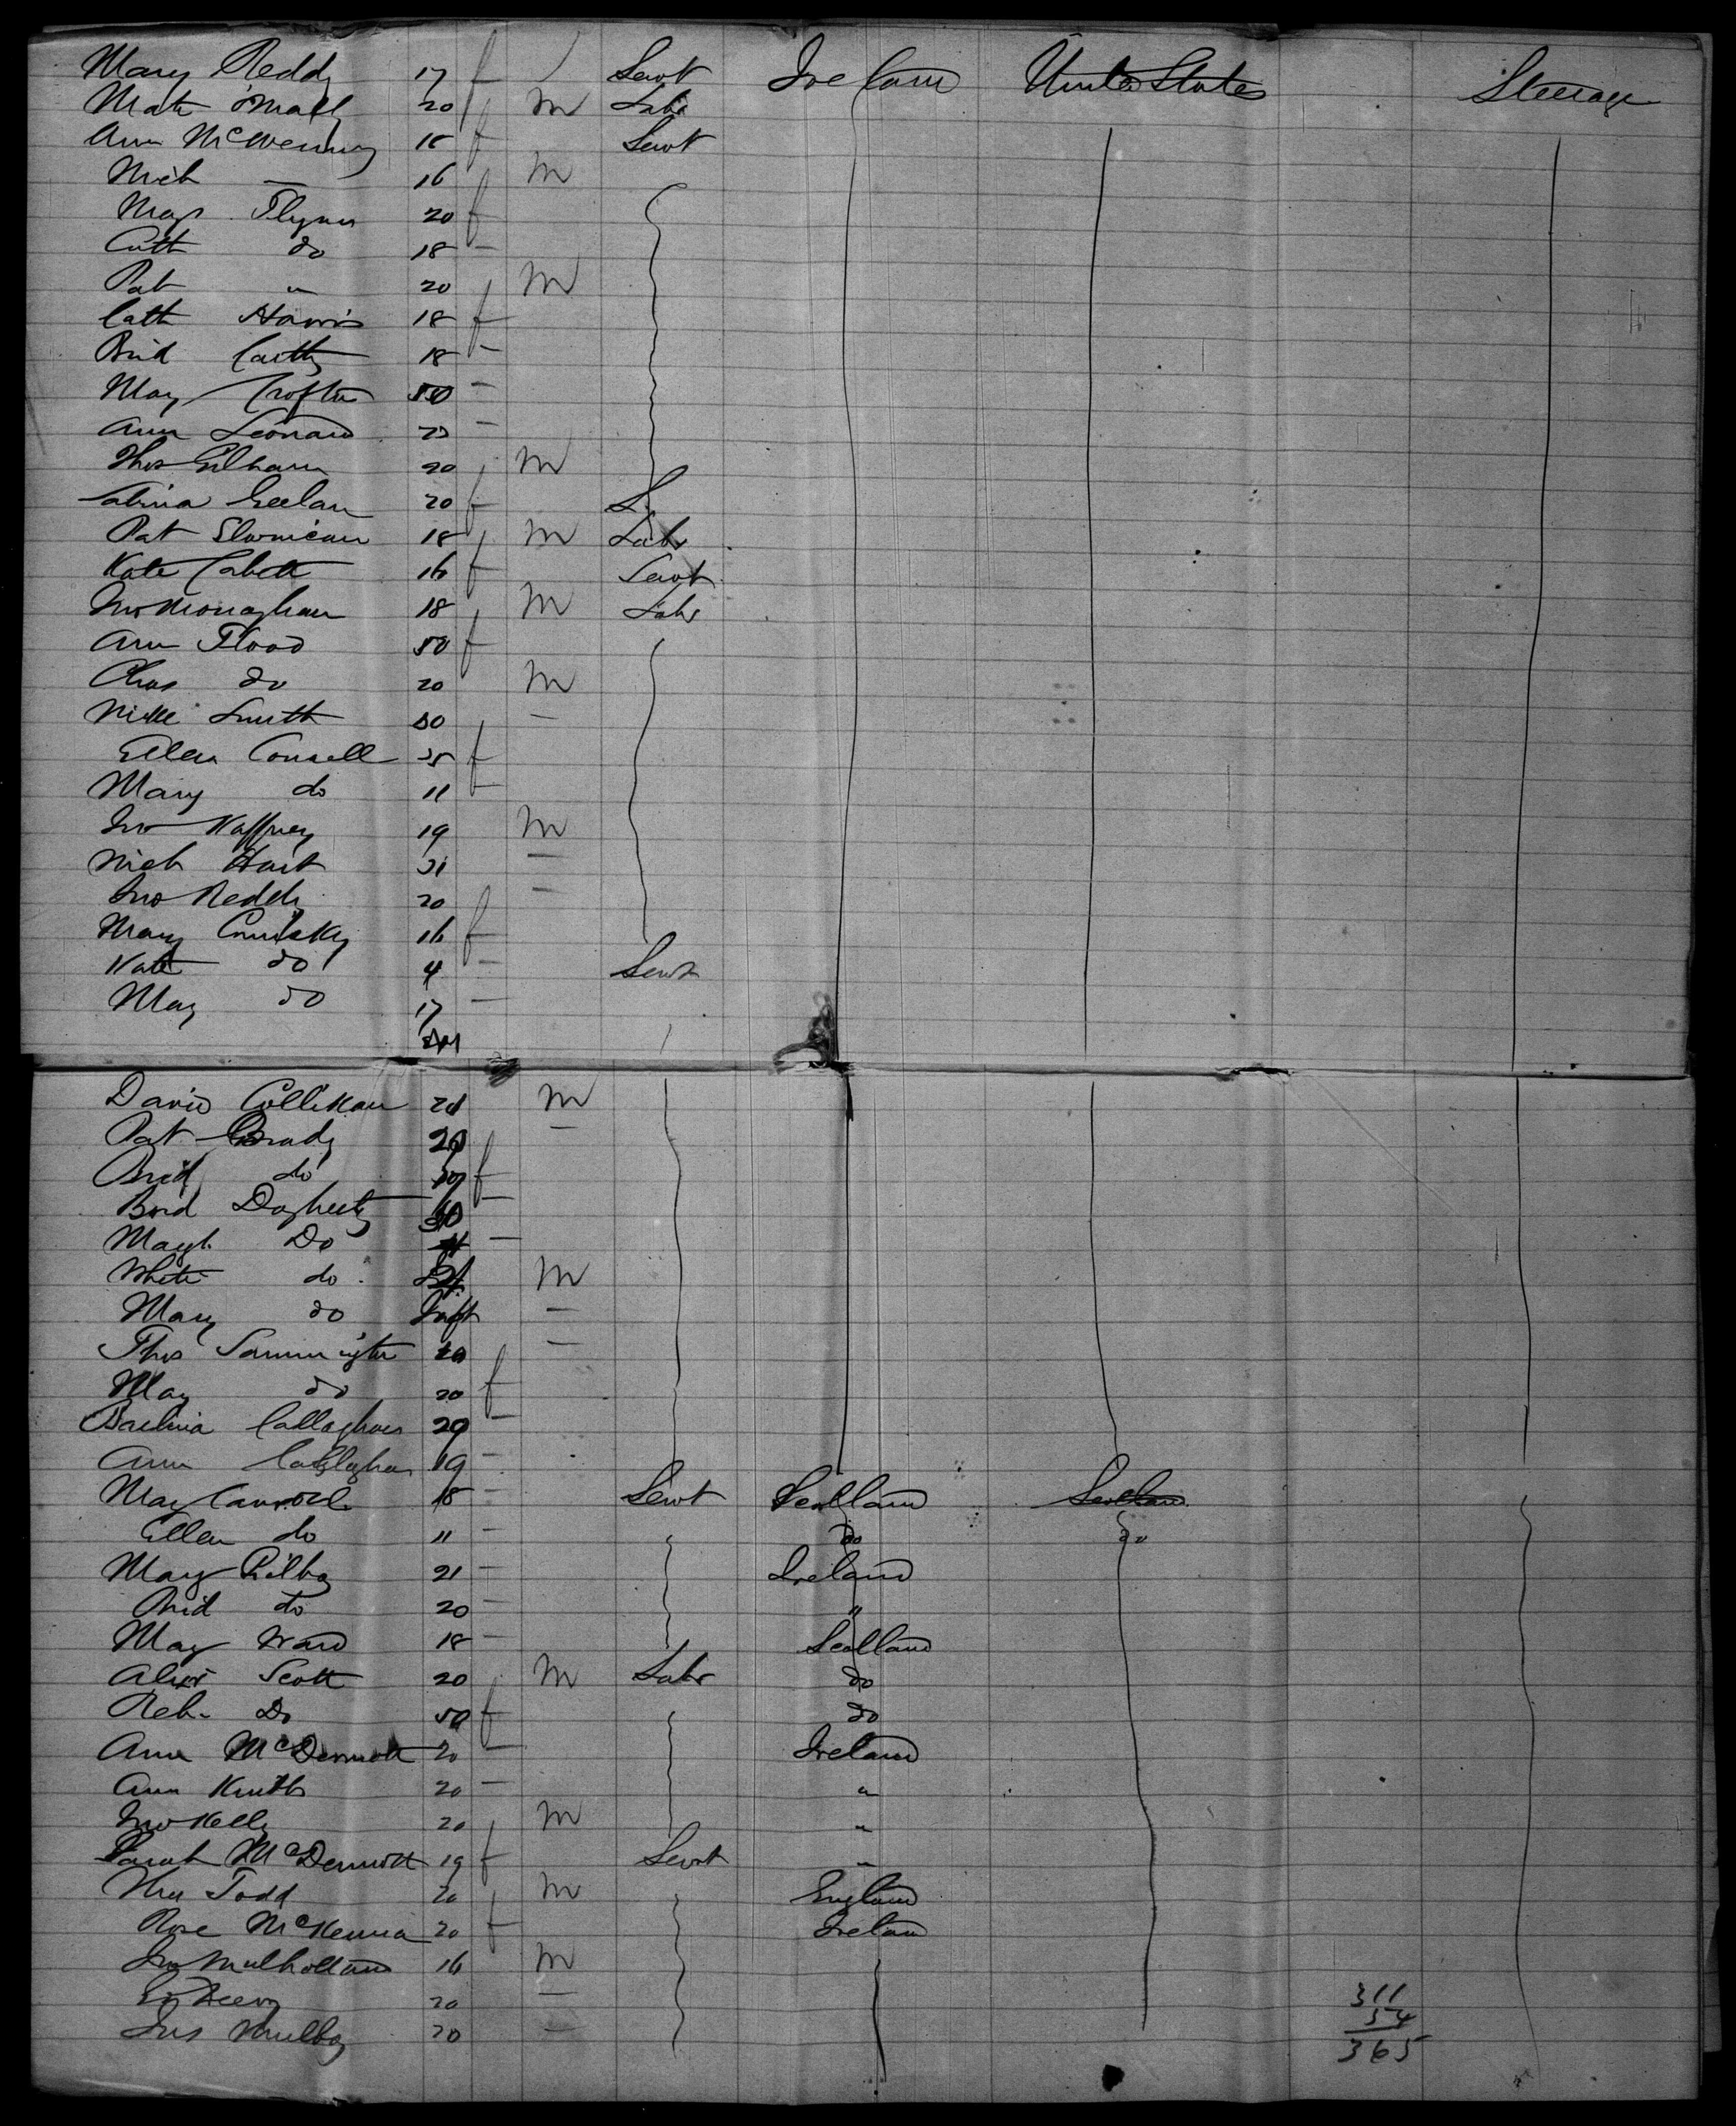 Mary Reddy 17 f Servt Ireland United States Steerage
Math O'Mally 20 m Labr
Ann McWeeny 18 f Servt
Mich — 16 m
Mags Flynn 20 f
Cath do 18 —
Pat " 20 m
Cath Harris 18 f
Brid Carthy 18 —
May Crofton 50 —
Ann Leonard —
Thos Gilhaun 20 m
Sabina Geelan 20 f S
Pat Slamicum 18 m Labr
Kate Cabett 16 f Servt
Jno Monaghan 18 m Labr
Ann Flood 50 f
Chas do 20 m
Smith 50 —
Ellen Connell 25 f
Mary do 11 f
Jno Kaffney 19 m
Mich Hart 21 —
Jno Reddy 20 —
Mary Comisky 16 f
Kate do 4 — Servt
May do 17 —
David Collikan m
Pat Brady 20 —
Brid do f
Brid Dogherty —
Magt Do 11 —
do m
Mary do Inft —
Thos 20 —
May do 20 f
Callaghan 20 —
Ann Callaghan 19 —
May Carroll 18 — Servt Scotland Scotland
Ellen do 11 — do do
May Rilby 21 — Ireland
Brid do 20 — "
May Ward 18 — Scotland
Alexr Scott 20 m Labr do
Reb. Do 50 f do
Ann McDermott 20 — Ireland
Ann Kmith 20 — "
Jno Kelly 20 m "
Sarah McDermott 19 f Servt "
Thos Todd 20 m England
Rose McKenna 20 f Ireland
Jno Mulholland 16 m
20 — 311
Jas Mulby 20 — 54
365